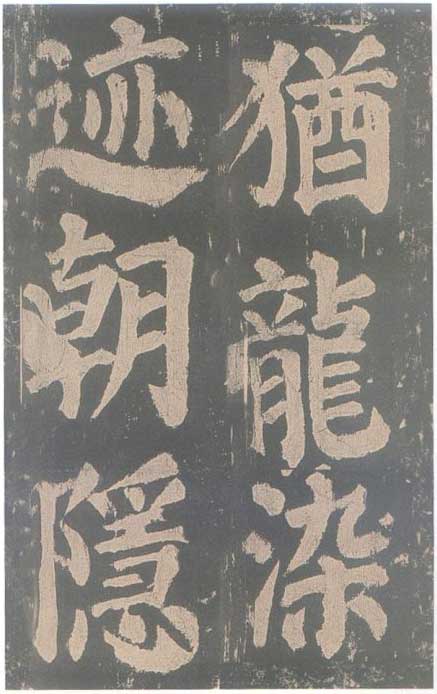 猶龍染
迹朝隱